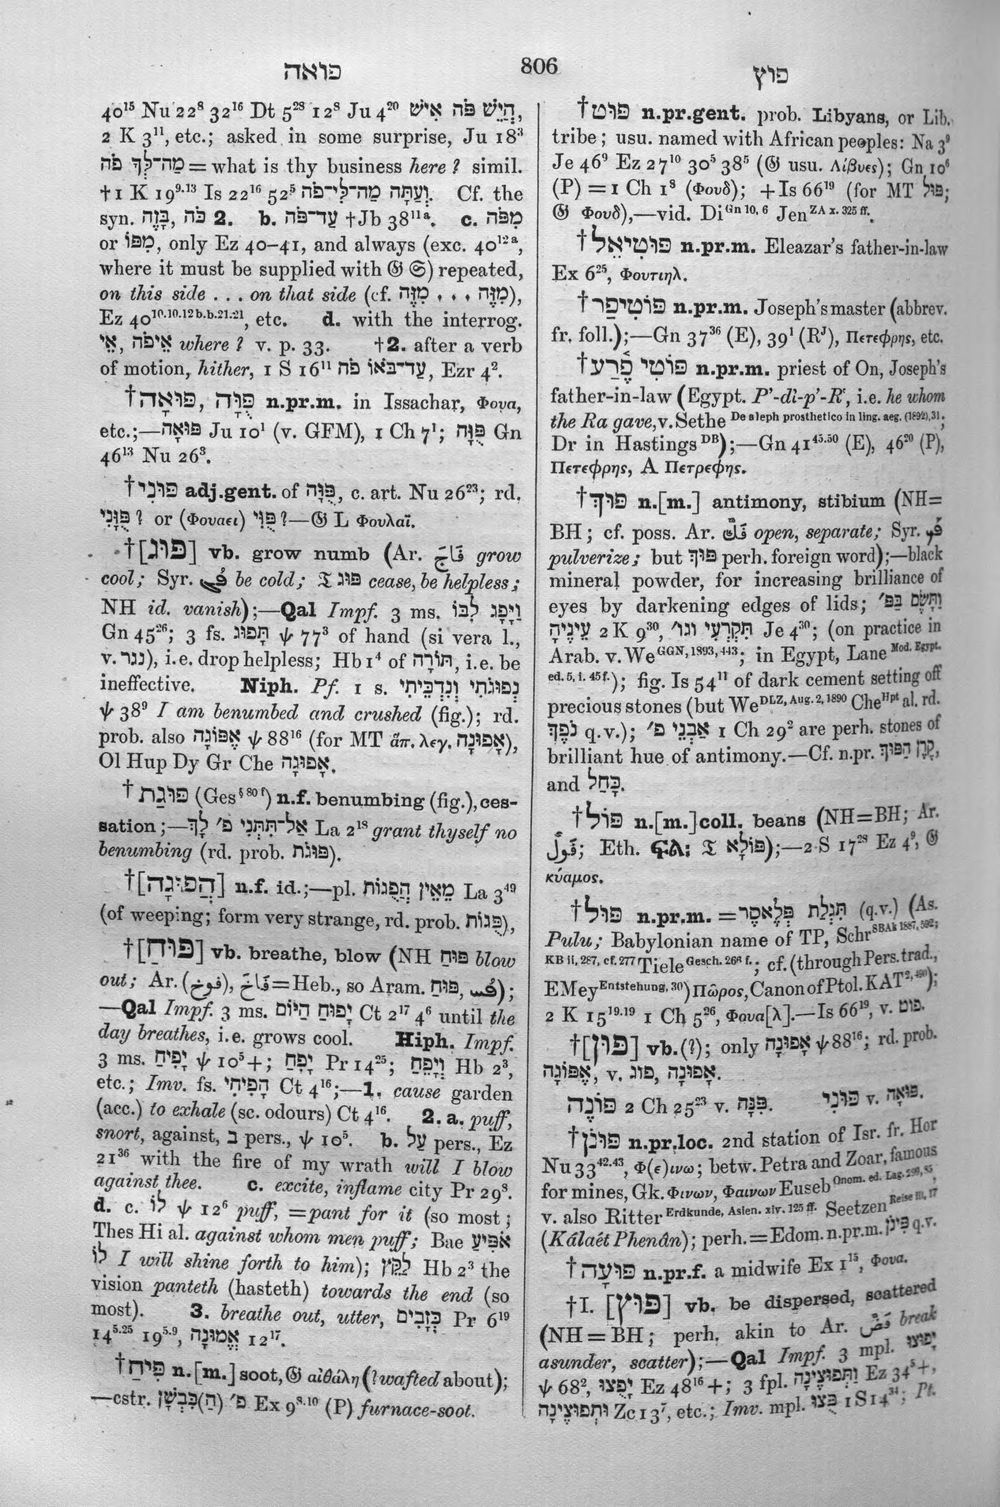 פואה
806
פוץ
40¹⁵ Nu 22⁸ 32¹⁶ Dt 5²⁸ 12⁸ Ju 4²⁰ הֲיֵשׁ פֹּה אִישׁ,
2 K 3¹¹, etc.; asked in some surprise, Ju 18³
מַה־לְּךָ פֹה = what is thy business here? simil.
†1 K 19⁹·¹³ Is 22¹⁶ 52⁵ וְעַתָּה מַה־לִּי־פֹה. Cf. the
syn. בָּזֶה, כֹּה 2. b. עַד־פֹּה †Jb 38¹¹ᵃ. c. מִפֹּה
or מִפּוֹ, only Ez 40–41, and always (exc. 40¹²ᵃ,
where it must be supplied with 𝔊 𝔖) repeated,
on this side . . . on that side (cf. מִזֶּה . . . מִזֶּה),
Ez 40¹⁰·¹⁰·¹²ᵇ·ᵇ·²¹·²¹, etc. d. with the interrog.
אֵי, אֵיפֹה where? v. p. 33. †2. after a verb
of motion, hither, 1 S 16¹¹ עַד־בֹּאוֹ פֹה, Ezr 4².
†פּוּאָה, פֻּוָּה n.pr.m. in Issachar, Φουα,
etc.;—פּוּאָה Ju 10¹ (v. GFM), 1 Ch 7¹; פֻּוָּה Gn
46¹³ Nu 26³.
†פּוּנִי adj.gent. of פֻּוָּה, c. art. Nu 26²³; rd.
פֻּוָּנִי? or (Φουαει) פֻּוִּי?—𝔊 L Φουλαΐ.
†[פּוּג] vb. grow numb (Ar. فَاجَ grow
cool; Syr. be cold; 𝔗 פּוּג cease, be helpless;
NH id. vanish);—Qal Impf. 3 ms. וַיָּפָג לִבּוֹ
Gn 45²⁶; 3 fs. תָּפוּג ψ 77³ of hand (si vera l.,
v. נגר), i.e. drop helpless; Hb 1⁴ of תּוֹרָה, i.e. be
ineffective. Niph. Pf. 1 s. נְפוּגֹתִי וְנִדְכֵּיתִי
ψ 38⁹ I am benumbed and crushed (fig.); rd.
prob. also אָפוּגָה ψ 88¹⁶ (for MT ἅπ. λεγ. אָפוּנָה),
Ol Hup Dy Gr Che אָפוּגָה.
†פּוּגַת (Ges§ ⁸⁰ ᶠ) n.f. benumbing (fig.), ces-
sation;—אַל־תִּתְּנִי פ׳ לָךְ La 2¹⁸ grant thyself no
benumbing (rd. prob. פּוּגֹת).
†[הֲפוּגָה] n.f. id.;—pl. מֵאֵין הֲפֻגוֹת La 3⁴⁹
(of weeping; form very strange, rd. prob. פֻּגוֹת),
†[פּוּחַ] vb. breathe, blow (NH פּוּחַ blow
out; Ar. (فوخ), فَاخَ = Heb., so Aram. פּוּחַ, );
—Qal Impf. 3 ms. יָפוּחַ הַיּוֹם Ct 2¹⁷ 4⁶ until the
day breathes, i.e. grows cool. Hiph. Impf.
3 ms. יָפִיחַ ψ 10⁵+; יָפִחַ Pr 14²⁵; וְיָפֵחַ Hb 2³,
etc.; Imv. fs. הָפִיחִי Ct 4¹⁶;—1. cause garden
(acc.) to exhale (sc. odours) Ct 4¹⁶. 2. a. puff,
snort, against, בְּ pers., ψ 10⁵. b. עַל pers., Ez
21³⁶ with the fire of my wrath will I blow
against thee. c. excite, inflame city Pr 29⁸.
d. c. לוֹ ψ 12⁶ puff, = pant for it (so most;
Thes Hi al. against whom men puff; Bae אפיע
לוֹ I will shine forth to him); לַקֵּץ Hb 2³ the
vision panteth (hasteth) towards the end (so
most). 3. breathe out, utter, כְּזָבִים Pr 6¹⁹
14⁵·²⁵ 19⁵·⁹, אֱמוּנָה 12¹⁷.
†פִּיחַ n.[m.] soot, 𝔊 αἰθάλη (? wafted about);
—cstr. פ׳ (הַ)כִּבְשָׁן Ex 9⁸·¹⁰ (P) furnace-soot.
†פּוּט n.pr.gent. prob. Libyans, or Lib.
tribe; usu. named with African peoples: Na 3⁹
Je 46⁹ Ez 27¹⁰ 30⁵ 38⁵ (𝔊 usu. Λίβυες); Gn 10⁶
(P) = 1 Ch 1⁸ (Φουδ); + Is 66¹⁹ (for MT פּוּל;
𝔊 Φουδ),—vid. Di Gn 10, 6 Jen ZA x. 325 ff.
†פּוּטִיאֵל n.pr.m. Eleazar's father-in-law
Ex 6²⁵, Φουτιηλ.
†פּוֹטִיפַר n.pr.m. Joseph's master (abbrev.
fr. foll.);—Gn 37³⁶ (E), 39¹ (Rᴶ), Πετεφρης, etc.
†פּוֹטִי פֶרַע n.pr.m. priest of On, Joseph's
father-in-law (Egypt. P'-dì-p'-R', i.e. he whom
the Ra gave, v. Sethe De aleph prosthetico in ling. aeg. (1892), 31;
Dr in Hastings DB);—Gn 41⁴⁵·⁵⁰ (E), 46²⁰ (P),
Πετεφρης, A Πετρεφης.
†פּוּךְ n.[m.] antimony, stibium (NH=
BH; cf. poss. Ar. فَكَّ open, separate; Syr.
pulverize; but פּוּךְ perh. foreign word);—black
mineral powder, for increasing brilliance of
eyes by darkening edges of lids; וַתָּשֶׂם בַּפּ׳
עֵינֶיהָ 2 K 9³⁰, תִקְרְעִי וגו׳ Je 4³⁰; (on practice in
Arab. v. We GGN, 1893, 443; in Egypt, Lane Mod. Egypt.
ed. 5, i. 45 f.); fig. Is 54¹¹ of dark cement setting off
precious stones (but We DLZ, Aug. 2, 1890 Che Hpt al. rd.
נֹפֶךְ q.v.); אַבְנֵי פ׳ 1 Ch 29² are perh. stones of
brilliant hue of antimony.—Cf. n.pr. קֶרֶן הַפּוּךְ,
and כָּחַל.
†פּוֹל n.[m.]coll. beans (NH=BH; Ar.
فُول; Eth. ፉል፡ 𝔗 פּוֹלָא);—2 S 17²⁸ Ez 4⁹, 𝔊
κύαμος.
†פּוּל n.pr.m. = תִּגְלַת פִּלְאֶסֶר (q.v.) (As.
Pulu; Babylonian name of TP, Schr SBAk 1887, 592;
KB ii, 287, cf. 277 Tiele Gesch. 226 f.; cf. (through Pers. trad.,
EMey Entstehung, 30) Πῶρος, Canon of Ptol. KAT², ⁴⁹⁰);
2 K 15¹⁹·¹⁹ 1 Ch 5²⁶, Φουα[λ].—Is 66¹⁹, v. פוט.
†[פּוּן] vb.(?); only אָפוּנָה ψ 88¹⁶; rd. prob.
אָפוּגָה, v. פוג, אָפוּנָה.
פּוֹנֶה 2 Ch 25²³ v. פִּנָּה. פּוּנִי v. פּוּאָה.
†פּוּנֹן n.pr.loc. 2nd station of Isr. fr. Hor
Nu 33⁴²·⁴³, Φ(ε)ινω; betw. Petra and Zoar, famous
for mines, Gk. Φινων, Φαινων Euseb Onom. ed. Lag. 299, 85
v. also Ritter Erdkunde, Asien. xiv. 125 ff. Seetzen Reise III, 17
(Ḳálaét Phenân); perh. = Edom. n.pr.m. פִּינֹן q.v.
†פּוּעָה n.pr.f. a midwife Ex 1¹⁵, Φουα.
†I. [פּוּץ] vb. be dispersed, scattered
(NH = BH; perh. akin to Ar. فَضَّ break
asunder, scatter);—Qal Impf. 3 mpl. יָפוּצוּ
ψ 68², יָפֻצוּ Ez 48¹⁶+; 3 fpl. וַתְּפוּצֶינָה Ez 34⁵+,
וּתְפוּצֶינָה Zc 13⁷, etc.; Imv. mpl. פֻּצוּ 1 S 14³⁴; Pt.